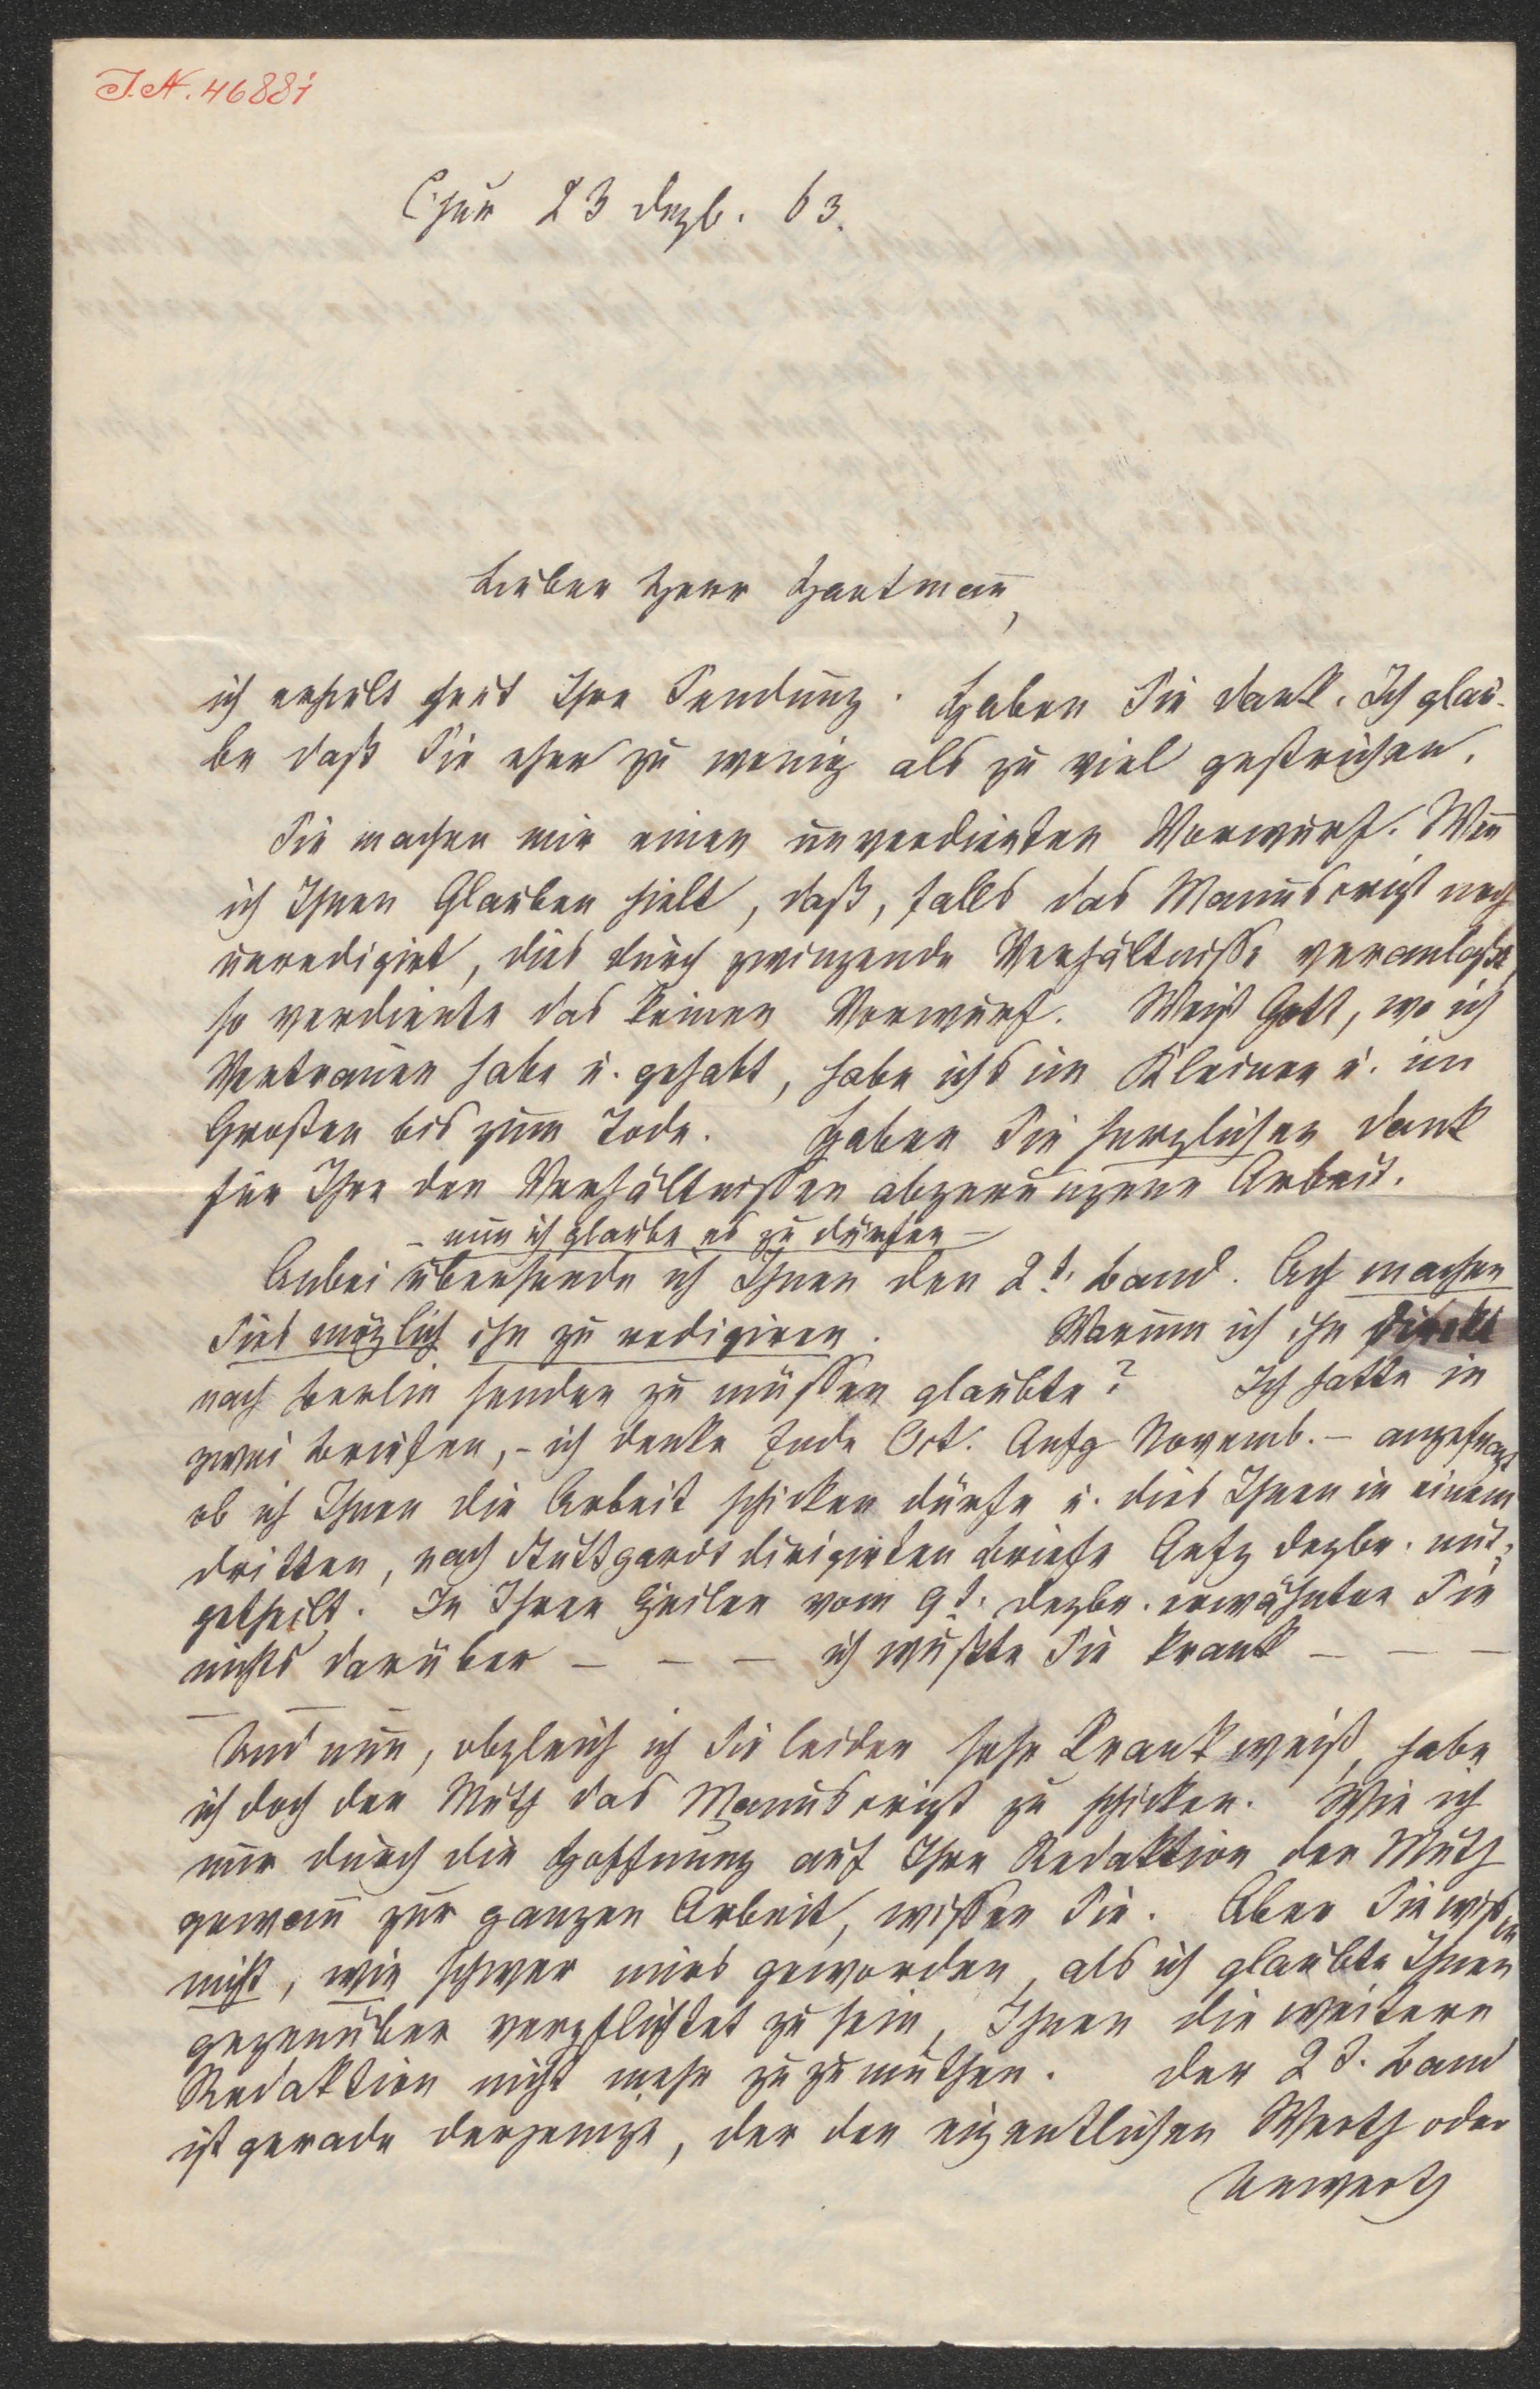 I.N. 46881
Chur 23 Dezb. 63.
Lieber Herr Hartmañ,
ich erhielt heut Ihre Sendung. Haben Sie Dank. Ich glau-
be daß Sie eher zu wenig als zu viel gestrichen.
Sie machen mir einen unverdienten Vorwurf. Weñ
ich Ihnen Glauben hielt, daß, falls das Manuscript noch
unredigirt, dies durch zwingende Verhältnisse veranlaßt,
so verdiente das keinen Vorwurf. Weiß Gott, wo ich
Vertrauen habe u. gehabt, habe ichs im Kleinen u. im
Großen bis zum Tode. Haben Sie herzlichen Dank
für Ihre den Verhältnissen abgerungene Arbeit.
– nun ich glaube es zu dürfen –
Anbei übersende ich Ihnen den 2t. Band. Ach machen
Sies möglich ihn zu redigiren. Warum ich ihn direkt
nach Berlin senden zu müssen glaubte? Ich hatte in
zwei Briefen, – ich denke Ende Oct. Anfg Novemb. – angefragt
ob ich Ihnen die Arbeit schicken dürfe u. dies Ihnen in einem
dritten, nach Stuttgardt dirigirten Briefe Anfg Dezbr. mit-
getheilt. In Ihren Zeilen vom 9t. Dezbr. erwähnten Sie
nichts darüber – – – ich wußte Sie krank – – –
– – –
Und nun, obgleich ich Sie leider sehr krank weiß, habe
ich doch den Muth das Manuscript zu schicken. Wie ich
nur durch die Hoffnung auf Ihre Redaktion den Muth
gewañ zur ganzen Arbeit, wissen Sie. Aber Sie wissen
nicht, wie schwer mirs geworden, als ich glaubte Ihnen
gegenüber verpflichtet zu sein, Ihnen die weitere
Redaktion nicht mehr zuzumuthen. Der 2t. Band
ist gerade derjenige, der den eigentlichen Werth oder
Unwerth